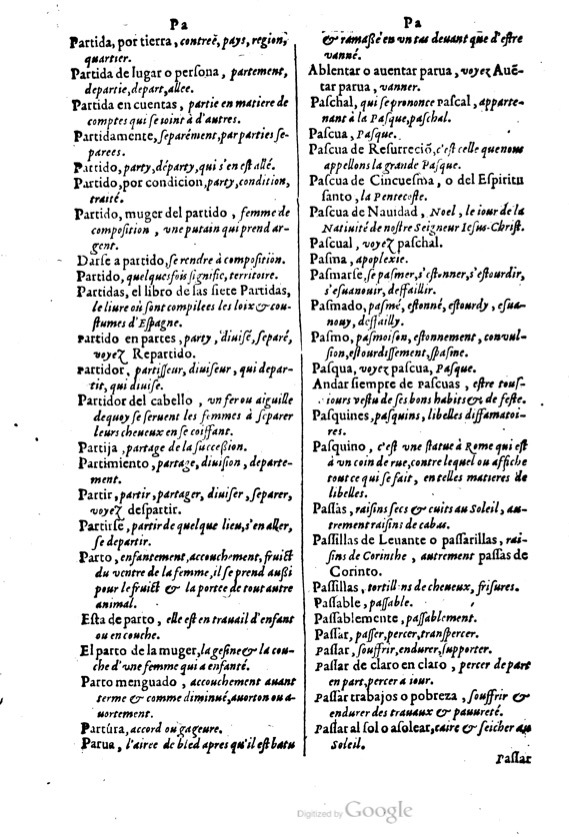 Pa
Partida, por tierra, contreē, pays, region,
quartier.
Partida de lugar o persona, partement,
departie, depart, allee.
Partida en cuentas, partie en matiere de
comptes qui se ioint à d'autres.
Partidamente, separément, par parties se-
parees.
Partido, party, départy, qui s'en est allé.
Partido, por condicion, party, condition,
traité.
Partido, muger del partido, femme de
composition, vne putain qui prend ar-
gent.
Darse a partido, se rendre à composition.
Partido, quelquesfois signifie, territoire.
Partidas, el libro de las siete Partidas,
le liure où sont compilees les loix & cou-
stumes d'Espagne.
Partido en partes, party, diuisé, separé,
voyez Repartido.
Partidor, partisseur, diuiseur, qui depar-
tit, qui diuise.
Partidor del cabello, vn fer ou aiguille
dequoy se seruent les femmes à separer
leurs cheueux en se coiffant.
Partija, partage de la succession.
Partimiento, partage, diuision, departe-
ment.
Partir, partir, partager, diuiser, separer,
voyez despartir.
Partirse, partir de quelque lieu, s'en aller,
se departir.
Parto, enfantement, accouchement, fruict
du ventre de la femme, il se prend aussi
pour le fruict & la portee de tout autre
animal.
Esta de parto, elle est en trauail d'enfant
ou en couche.
El parto de la muger, la gesine & la cou-
che d'vne femme qui a enfanté.
Parto menguado, accouchement auant
terme & comme diminué, auorton ou a-
uortement.
Partúra, accord ou gageure.
Parua, l'airee de bled apres qu'il est batu
Pa
& ramassé en vn tas deuant que d'estre
vanné.
Ablentar o auentar parua, voyez Auē-
tar parua, vanner.
Paschal, qui se prononce pascal, apparte-
nant à la Pasque, paschal.
Pascua, Pasque.
Pascua de Resurreciō, c'est celle que nous
appellons la grande Pasque.
Pascua de Cincuesma, o del Espiritu
santo, la Pentecoste.
Pascua de Nauidad, Noel, le iour de la
Natiuité de nostre Seigneur Iesus-Christ.
Pascual, voyez paschal.
Pasma, apoplexie.
Pasmarse, se pasmer, s'estonner, s'estourdir,
s'esuanouir, deffaillir.
Pasmado, pasmé, estonné, estourdy, esua-
nouy, deffailly.
Pasmo, pasmoison, estonnement, conuul-
sion, estourdissement, spasme.
Pasqua, voyez pascua, Pasque.
Andar siempre de pascuas, estre tous-
iours vestu de ses bons habits & de feste.
Pasquines, pasquins, libelles diffamatoi-
res.
Pasquino, c'est vne statuë à Rome qui est
à vn coin de rue, contre lequel ou affiche
tout ce qui se fait, en telles matieres de
libelles.
Passas, raisins secs & cuits au Soleil, au-
trement raisins de cabas.
Passillas de Leuante o passarillas, rai-
sins de Corinthe, autrement passas de
Corinto.
Passillas, tortill ns de cheueux, frisures.
Passable, passable.
Passablemente, passablement.
Passar, passer, percer, transpercer.
Passar, souffrir, endurer, supporter.
Passar de claro en claro, percer de part
en part, percer a iour.
Passar trabajos o pobreza, souffrir &
endurer des trauaux & pauureté.
Passar al sol o asolear, cuire & seicher au
Soleil.
Passar
Digitized by Google